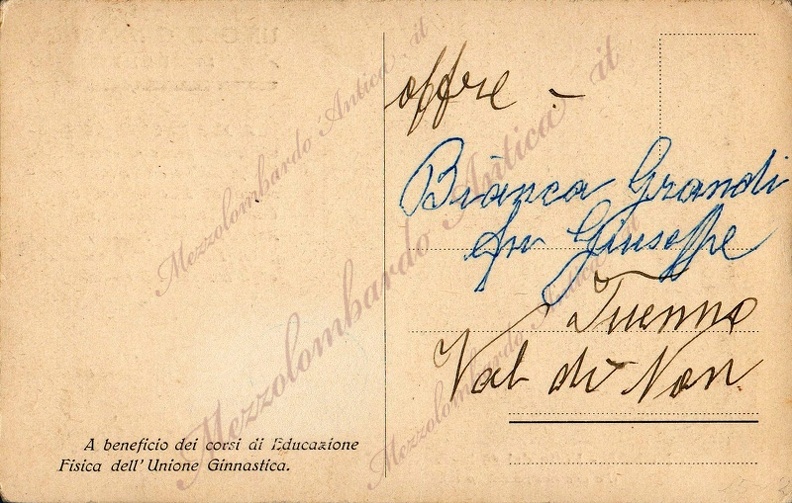 offre -
Bianca Grandi
fu Giuseppe
Tuenno
Val di Non
A beneficio dei corsi di Educazione
Fisica dell' Unione Ginnastica.
Mezzolombardo Antica . it
Mezzolombardo Antica . it
Mezzolombardo Antica . it